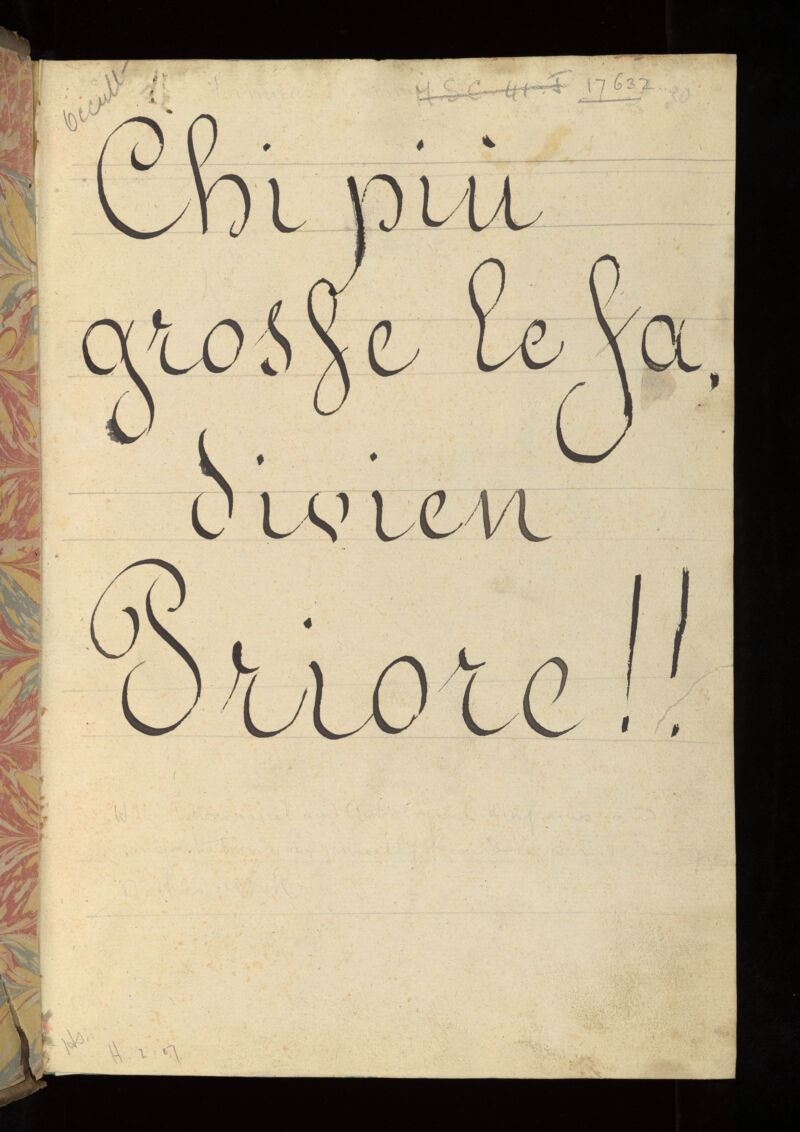 Occult
M.S.C. 41. I 17632
Chi più
grosse le fa,
divien
Priore!!